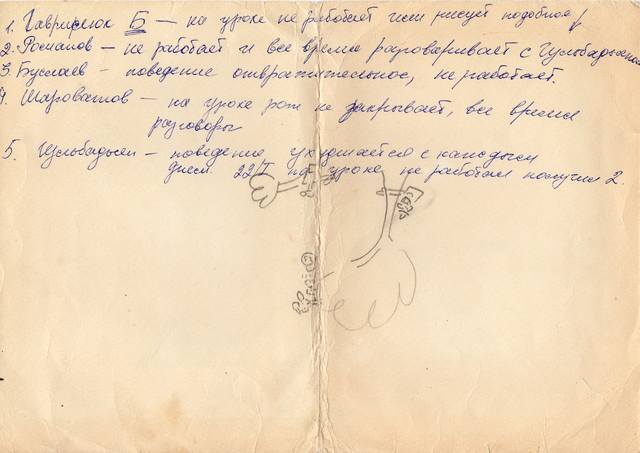 1. Гаврисюк Б — на уроке не работает или рисует подобное
2. Романов — не работает и все время разговаривает с Цульбадыном
3. Буслаев — поведение отвратительное, не работает.
4. Шароватов — на уроке рот не закрывает, все время
разговоры
5. Цульбадын — поведение ухудшается с каждым
днем. 22/I на уроке не работал получил 2.